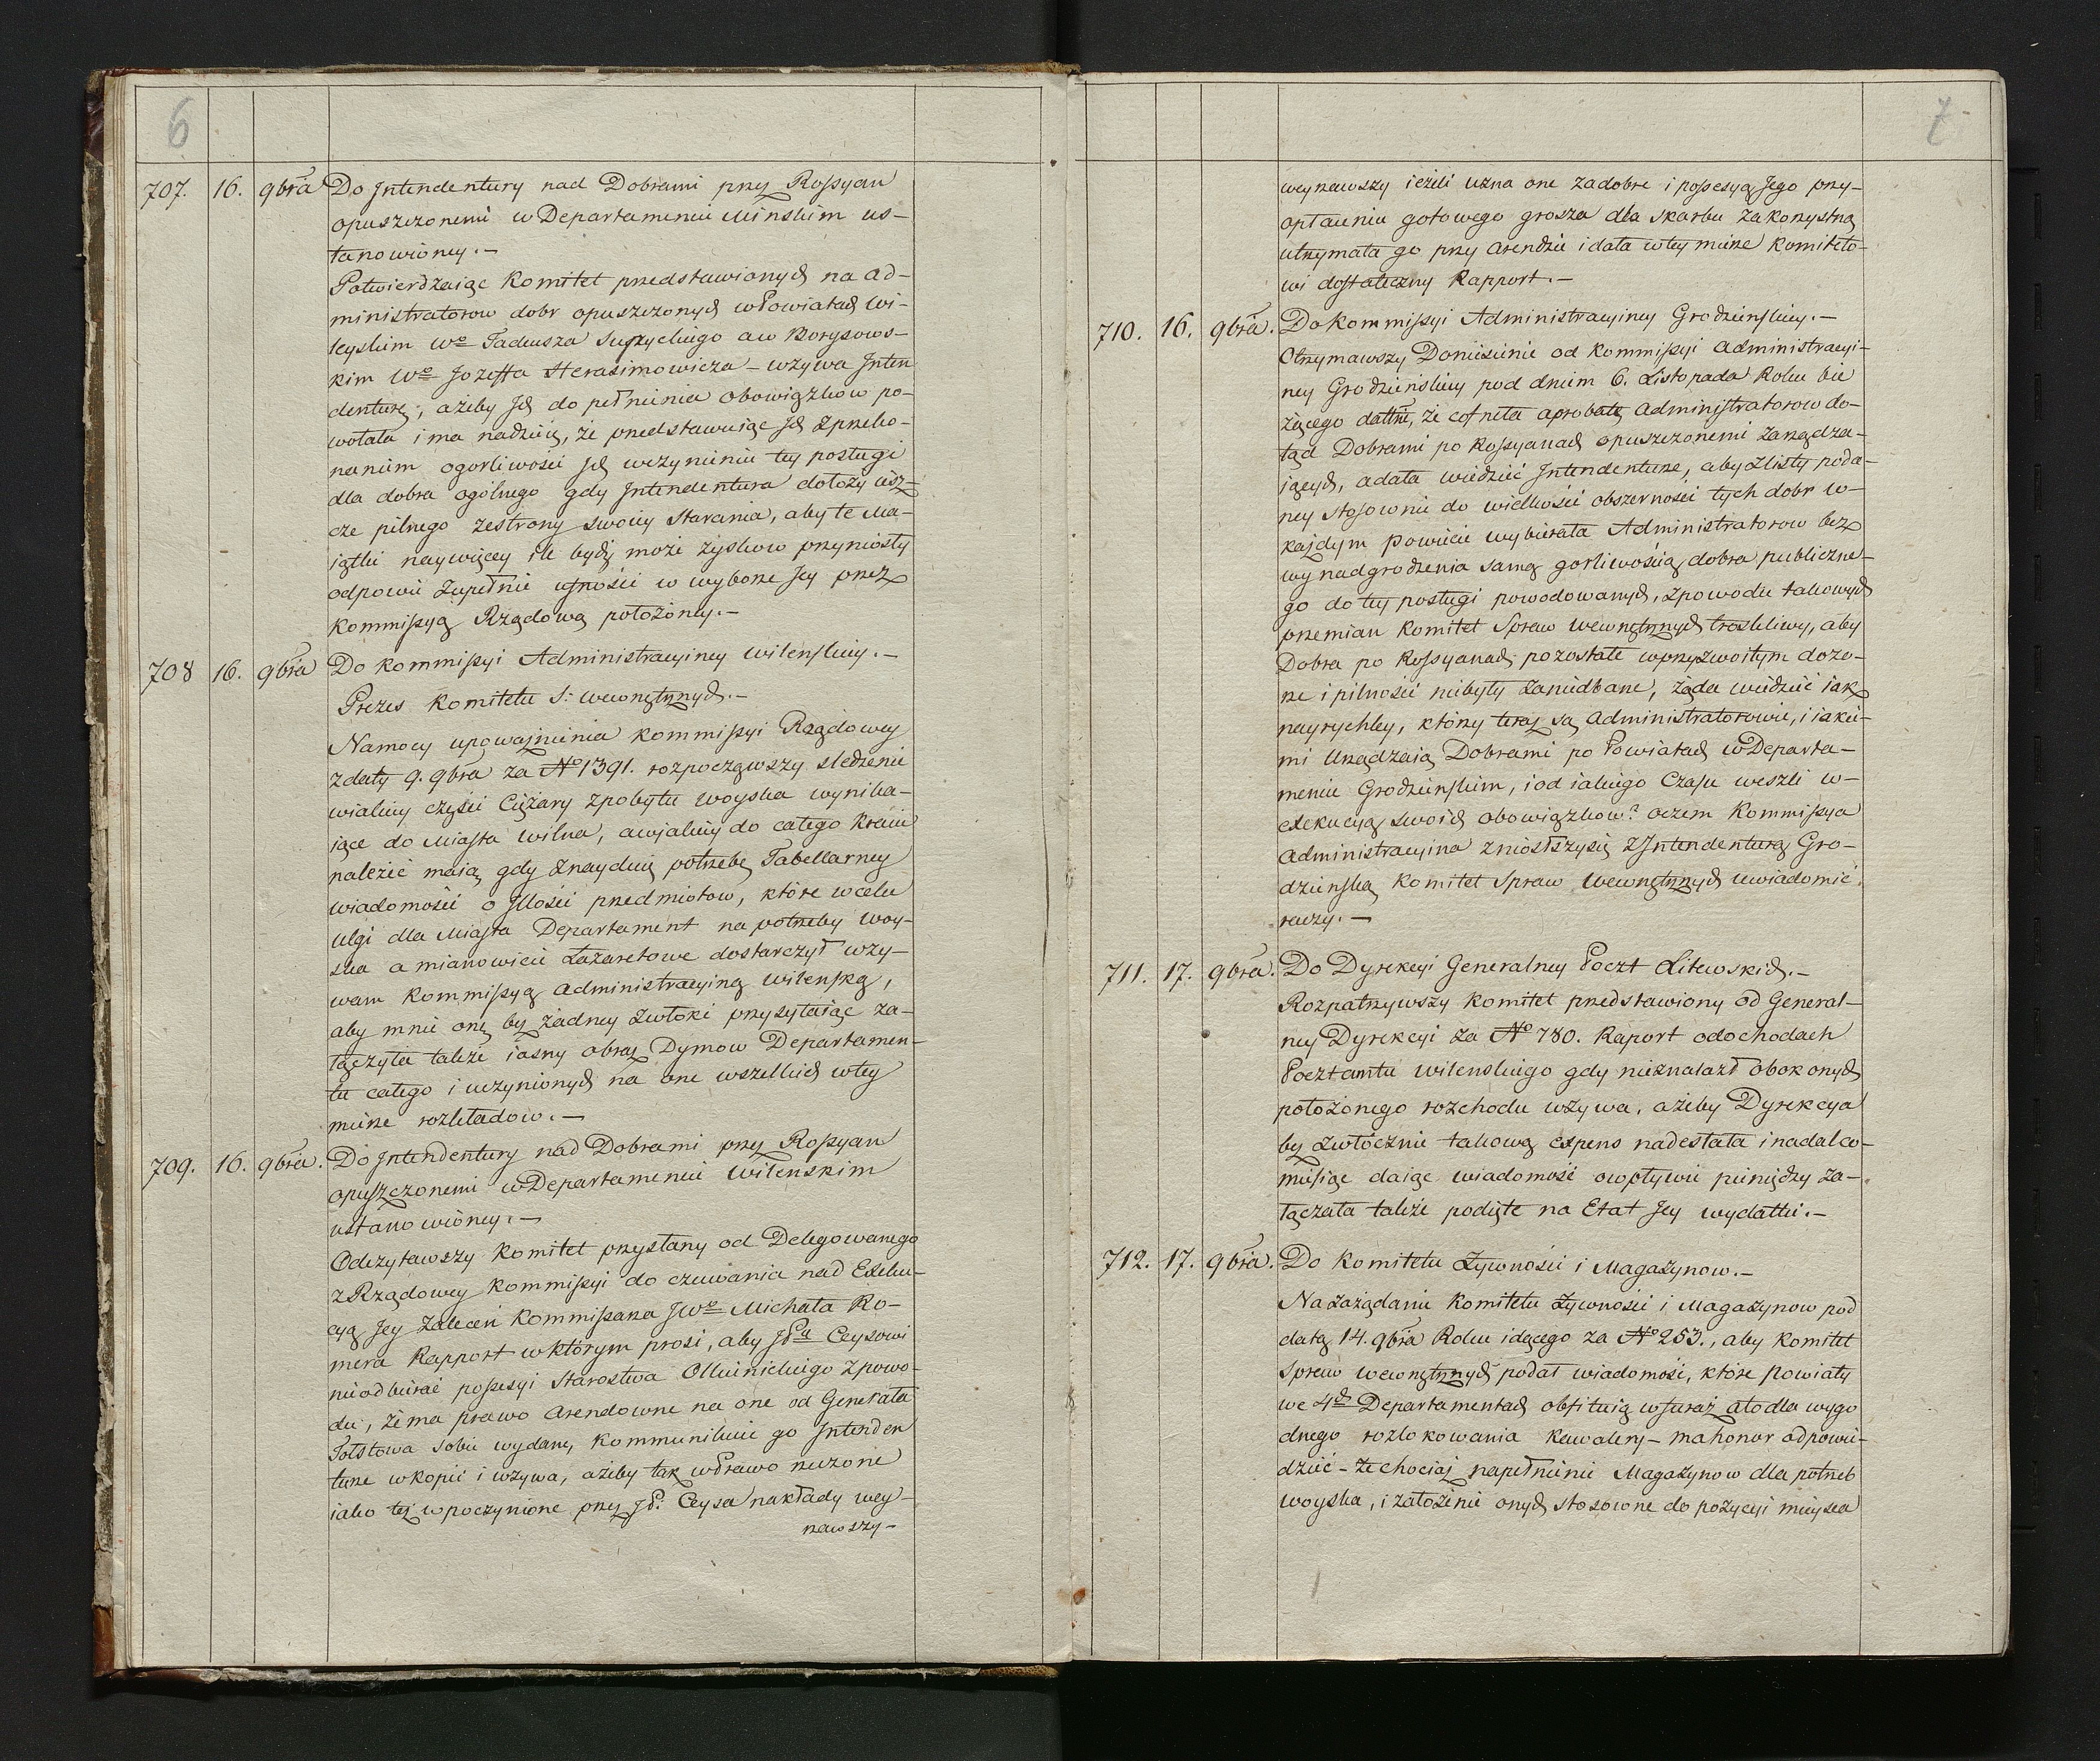 6
707. 16. 9bra Do Jntendentury nad Dobrami przez Rossyan
opuszczonemi w Departamencie Minskim us-
tanowioney.-
Potwierdzaiąc Komitet przedstawionych na ad-
ministratorow dobr opuszczonych w Powiatach Wi-
leyskim We Tadeusza a w Borysows-
kim We Jozeffa Herasimowicza - wzywa Jnten
denturę, ażeby Jch do pełnienia obowiązkow po-
wołała i ma nadzieię, że przedstawuiąc Jch z przeko-
naniem o gorliwości Jch w czynieniu tey posługi
dla dobra ogólnego gdy Jntendentura dołoży iesz=
cze pilnego ze strony swoiey starania, aby te Ma-
iątki naywięcey ile bydź może zyskow przyniosły
odpowie zupełnie ufności w wyborze Jey przez
Kommissyą Rządową położoney.-
708 16. 9bra Do Kommissyi Administracyiney Wilenskiey.-
Prezes Komitetu S: Wewnętrznych.-
Na mocy upoważnienia Kommissyi Rządowey
z daty 9. 9bra za No 1391. rozpocząwszy sledzenie
w iakiey części Ciężary z pobytu woyska wynika-
iące do Miasta Wilna, a w iakiey do całego Kraiu
należeć maią, gdy znayduię potrzebę Tabellarney
wiadomości o Jlości przedmiotow, które w celu
ulgi dla Miasta Departament na potrzeby woy-
ska a mianowicie Lazaretowe dostarczył wzy-
wam Kommissyą Administracyiną Wilenską,
aby mnie onę bez żadney zwłoki przysyłaiąc za-
łączyła także iasny obraz Dymow Departamen-
tu całego i uczynionych na one wszelkich w tey
mierze rozkładow.-
709. 16. 9bra. Do Jntendentury nad Dobrami przez Rossyan
opuszczonemi w Departamencie Wilenskim
ustanowioney.-
Odczytawszy Komitet przysłany od Delegowanego
z Rządowey Kommissyi do czuwania nad Exeku-
cyą Jey Zaleceń Kommissarza JWo Michała Ro-
mera Rapport w którym prosi, aby JPu Ceysowi
nie odbierać possesyi Starostwa Olkienickiego z powo-
du, że ma prawo Arendowne na one od Generała
Tołstowa sobie wydane, Kommunikuie go Jntenden
turze w kopii i wzywa, ażeby tak w Prawo rzeczone
iako też w poczynione przez JP. Ceysa nakłady wey-
rzawszy-
7
weyrzawszy ieżeli uzna one za dobre i possesyą Jego przy-
opłaceniu gotowego grosza dla skarbu za korzystną
utrzymała go przy arendzie i dała w tey mierze Komiteto-
wi dostateczny Rapport.-
710. 16. 9bra. Do Kommissyi Administracyiney Grodzieńskiey.-
Otrzymawszy Doniesienie od Kommissyi Administracyi-
ney Grodzieńskiey pod dniem 6. Listopada Roku bie
żącego dattne, że cofneła aprobatę Administratorow do-
tąd Dobrami po Rossyanach opuszczonemi zarządza-
iących, a dała wiedzieć Jntendenturze, aby z listy poda-
ney stosownie do wielkości obszerności tych dobr w-
każdym Powiecie wybierała Administratorow bez
wynadgrodzenia samą gorliwością dobra publiczne-
go do tey posługi powodowanych, z powodu takowych
przemian Komitet Spraw Wewnętrznych troskliwy, aby
Dobra po Rossyanach pozostałe w przyzwoitym dozo-
rze i pilności niebyły zaniedbane, żąda wiedzieć iak
nayrychley, którzy teraz są Administratorowie, i iakie-
mi Urządzaią Dobrami po Powiatach w Departa-
mencie Grodzieńskim, i od iakiego Czasu weszli w-
exekucyą swoich obowiązkow? o czem Kommissya
Administracyina zniosłszy się z Jntendenturą Gro-
dzieńską Komitet Spraw Wewnętrznych uwiadomić
raczy.-
711. 17. 9bra. Do Dyrekcyi Generalney Poczt Litewskich.-
Rozpatrzywszy Komitet przedstawiony od General-
ney Dyrekcyi za No 780. Raport o dochodach
Pocztamtu Wilenskiego gdy nieznalazł obok onych
położonego rozchodu wzywa, ażeby Dyrekcya
bez zwłócznie takową expens nadesłała i nadal co-
miesiąc daiąc wiadomość o wpływie pieniędzy za-
łączała także podięte na Etat Jey wydatki.-
712. 17. 9bra. Do Komitetu Żywności i Magazynow.-
Na zażądanie Komitetu Żywności i Magazynow pod
datą 14. 9bra Roku idącego za No 253., aby Komitet
Spraw Wewnętrznych podał wiadomość, które Powiaty
we 4ch Departamentach obfituią w furaż a to dla wygo
dnego rozlokowania Kawalery - ma honor odpowie-
dzieć - że chociaż napełnienie Magazynow dla potrzeb
woyska, i założenie onych stosowne do pozycyi mieysca